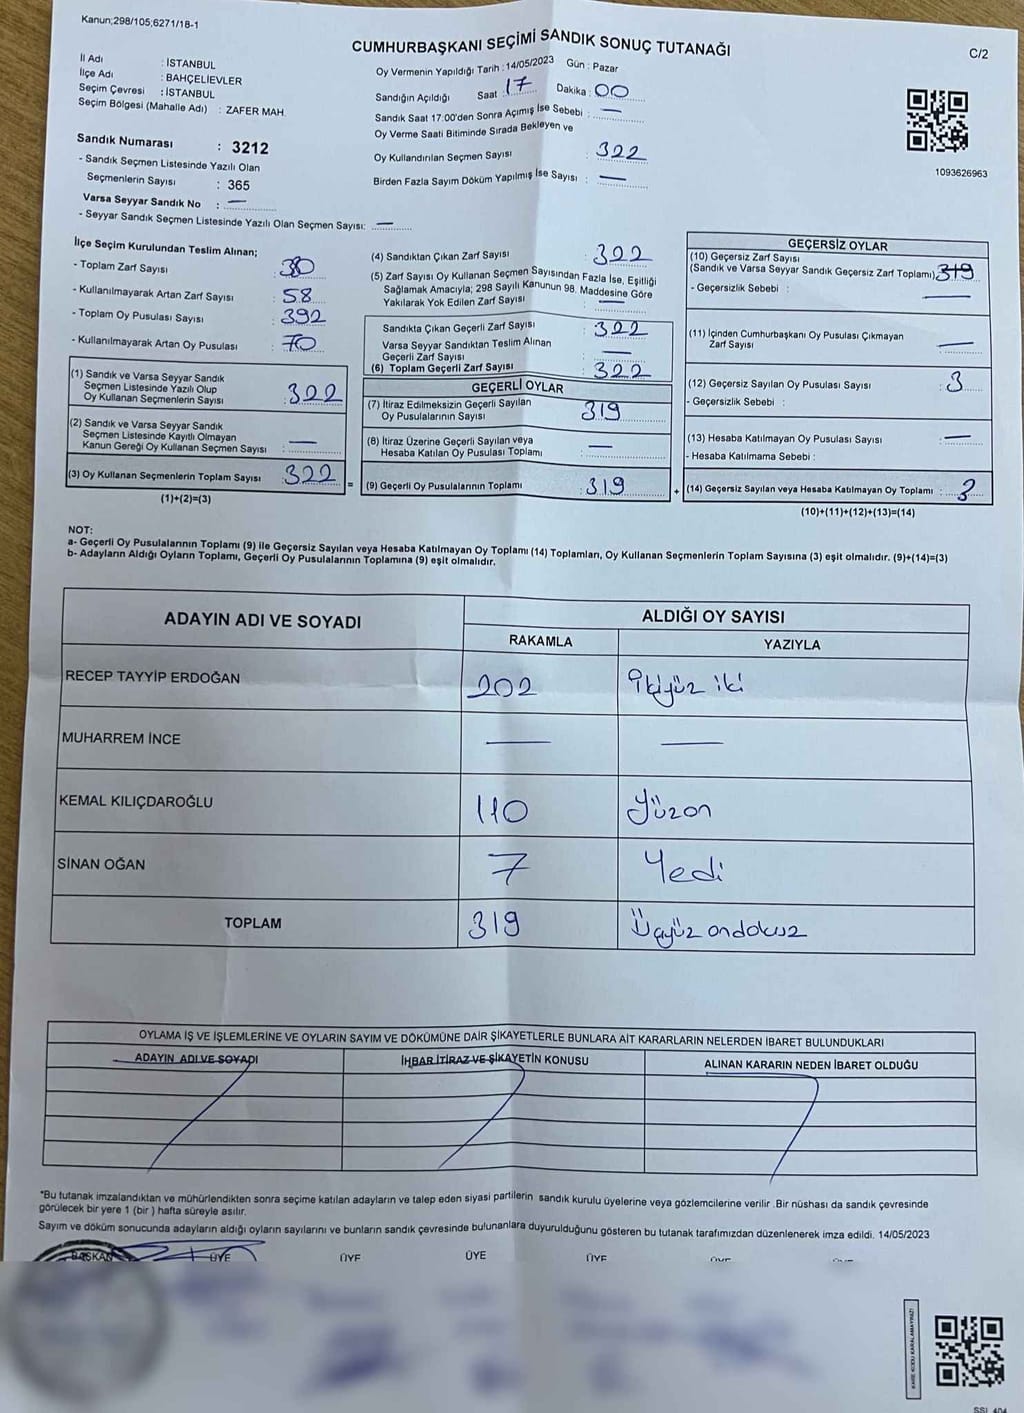 Kanun;298/105;6271/18-1
CUMHURBAŞKANI SEÇİMİ SANDIK SONUÇ TUTANAĞI
C/2
İl Adı : İSTANBUL
İlçe Adı : BAHÇELİEVLER
Seçim Çevresi : İSTANBUL
Seçim Bölgesi (Mahalle Adı) : ZAFER MAH.
Sandık Numarası : 3212
- Sandık Seçmen Listesinde Yazılı Olan
Seçmenlerin Sayısı : 365
Varsa Seyyar Sandık No : —
- Seyyar Sandık Seçmen Listesinde Yazılı Olan Seçmen Sayısı: —
Oy Vermenin Yapıldığı Tarih : 14/05/2023 Gün : Pazar
Sandığın Açıldığı Saat : 17 Dakika : 00
Sandık Saat 17:00'den Sonra Açımış İse Sebebi : —
Oy Verme Saati Bitiminde Sırada Bekleyen ve
Oy Kullandırılan Seçmen Sayısı : 322
Birden Fazla Sayım Döküm Yapılmış İse Sayısı : —
1093626963
İlçe Seçim Kurulundan Teslim Alınan;
- Toplam Zarf Sayısı :
- Kullanılmayarak Artan Zarf Sayısı : 58
- Toplam Oy Pusulası Sayısı : 392
- Kullanılmayarak Artan Oy Pusulası : 70
(1) Sandık ve Varsa Seyyar Sandık
Seçmen Listesinde Yazılı Olup
Oy Kullanan Seçmenlerin Sayısı : 322
(2) Sandık ve Varsa Seyyar Sandık
Seçmen Listesinde Kayıtlı Olmayan
Kanun Gereği Oy Kullanan Seçmen Sayısı : —
(3) Oy Kullanan Seçmenlerin Toplam Sayısı : 322
(1)+(2)=(3)
=
(4) Sandıktan Çıkan Zarf Sayısı : 322
(5) Zarf Sayısı Oy Kullanan Seçmen Sayısından Fazla İse, Eşitliği
Sağlamak Amacıyla; 298 Sayılı Kanunun 98. Maddesine Göre
Yakılarak Yok Edilen Zarf Sayısı : —
Sandıkta Çıkan Geçerli Zarf Sayısı : 322
Varsa Seyyar Sandıktan Teslim Alınan
Geçerli Zarf Sayısı : —
(6) Toplam Geçerli Zarf Sayısı : 322
GEÇERLİ OYLAR
(7) İtiraz Edilmeksizin Geçerli Sayılan
Oy Pusulalarının Sayısı : 319
(8) İtiraz Üzerine Geçerli Sayılan veya
Hesaba Katılan Oy Pusulası Toplamı : —
(9) Geçerli Oy Pusulalarının Toplamı : 319
+
GEÇERSİZ OYLAR
(10) Geçersiz Zarf Sayısı
(Sandık ve Varsa Seyyar Sandık Geçersiz Zarf Toplamı) : 319
- Geçersizlik Sebebi : —
(11) İçinden Cumhurbaşkanı Oy Pusulası Çıkmayan
Zarf Sayısı : —
(12) Geçersiz Sayılan Oy Pusulası Sayısı : 3
- Geçersizlik Sebebi :
(13) Hesaba Katılmayan Oy Pusulası Sayısı : —
- Hesaba Katılmama Sebebi :
(14) Geçersiz Sayılan veya Hesaba Katılmayan Oy Toplamı : 3
(10)+(11)+(12)+(13)=(14)
NOT:
a- Geçerli Oy Pusulalarının Toplamı (9) ile Geçersiz Sayılan veya Hesaba Katılmayan Oy Toplamı (14) Toplamları, Oy Kullanan Seçmenlerin Toplam Sayısına (3) eşit olmalıdır. (9)+(14)=(3)
b- Adayların Aldığı Oyların Toplamı, Geçerli Oy Pusulalarının Toplamına (9) eşit olmalıdır.
ADAYIN ADI VE SOYADI ALDIĞI OY SAYISI
RAKAMLA YAZIYLA
RECEP TAYYİP ERDOĞAN 202 İkiyüz iki
MUHARREM İNCE — —
KEMAL KILIÇDAROĞLU 110 Yüzon
SİNAN OĞAN 7 Yedi
TOPLAM 319 Üçyüz ondokuz
OYLAMA İŞ VE İŞLEMLERİNE VE OYLARIN SAYIM VE DÖKÜMÜNE DAİR ŞİKAYETLERLE BUNLARA AİT KARARLARIN NELERDEN İBARET BULUNDUKLARI
ADAYIN ADI VE SOYADI İHBAR İTİRAZ VE ŞİKAYETİN KONUSU ALINAN KARARIN NEDEN İBARET OLDUĞU
*Bu tutanak imzalandıktan ve mühürlendikten sonra seçime katılan adayların ve talep eden siyasi partilerin sandık kurulu üyelerine veya gözlemcilerine verilir .Bir nüshası da sandık çevresinde
görülecek bir yere 1 (bir ) hafta süreyle asılır.
Sayım ve döküm sonucunda adayların aldığı oyların sayılarını ve bunların sandık çevresinde bulunanlara duyurulduğunu gösteren bu tutanak tarafımızdan düzenlenerek imza edildi. 14/05/2023
BAŞKAN ÜYE ÜYE ÜYE ÜYE ÜYE
KARE KODU KARALAMAYINIZ!